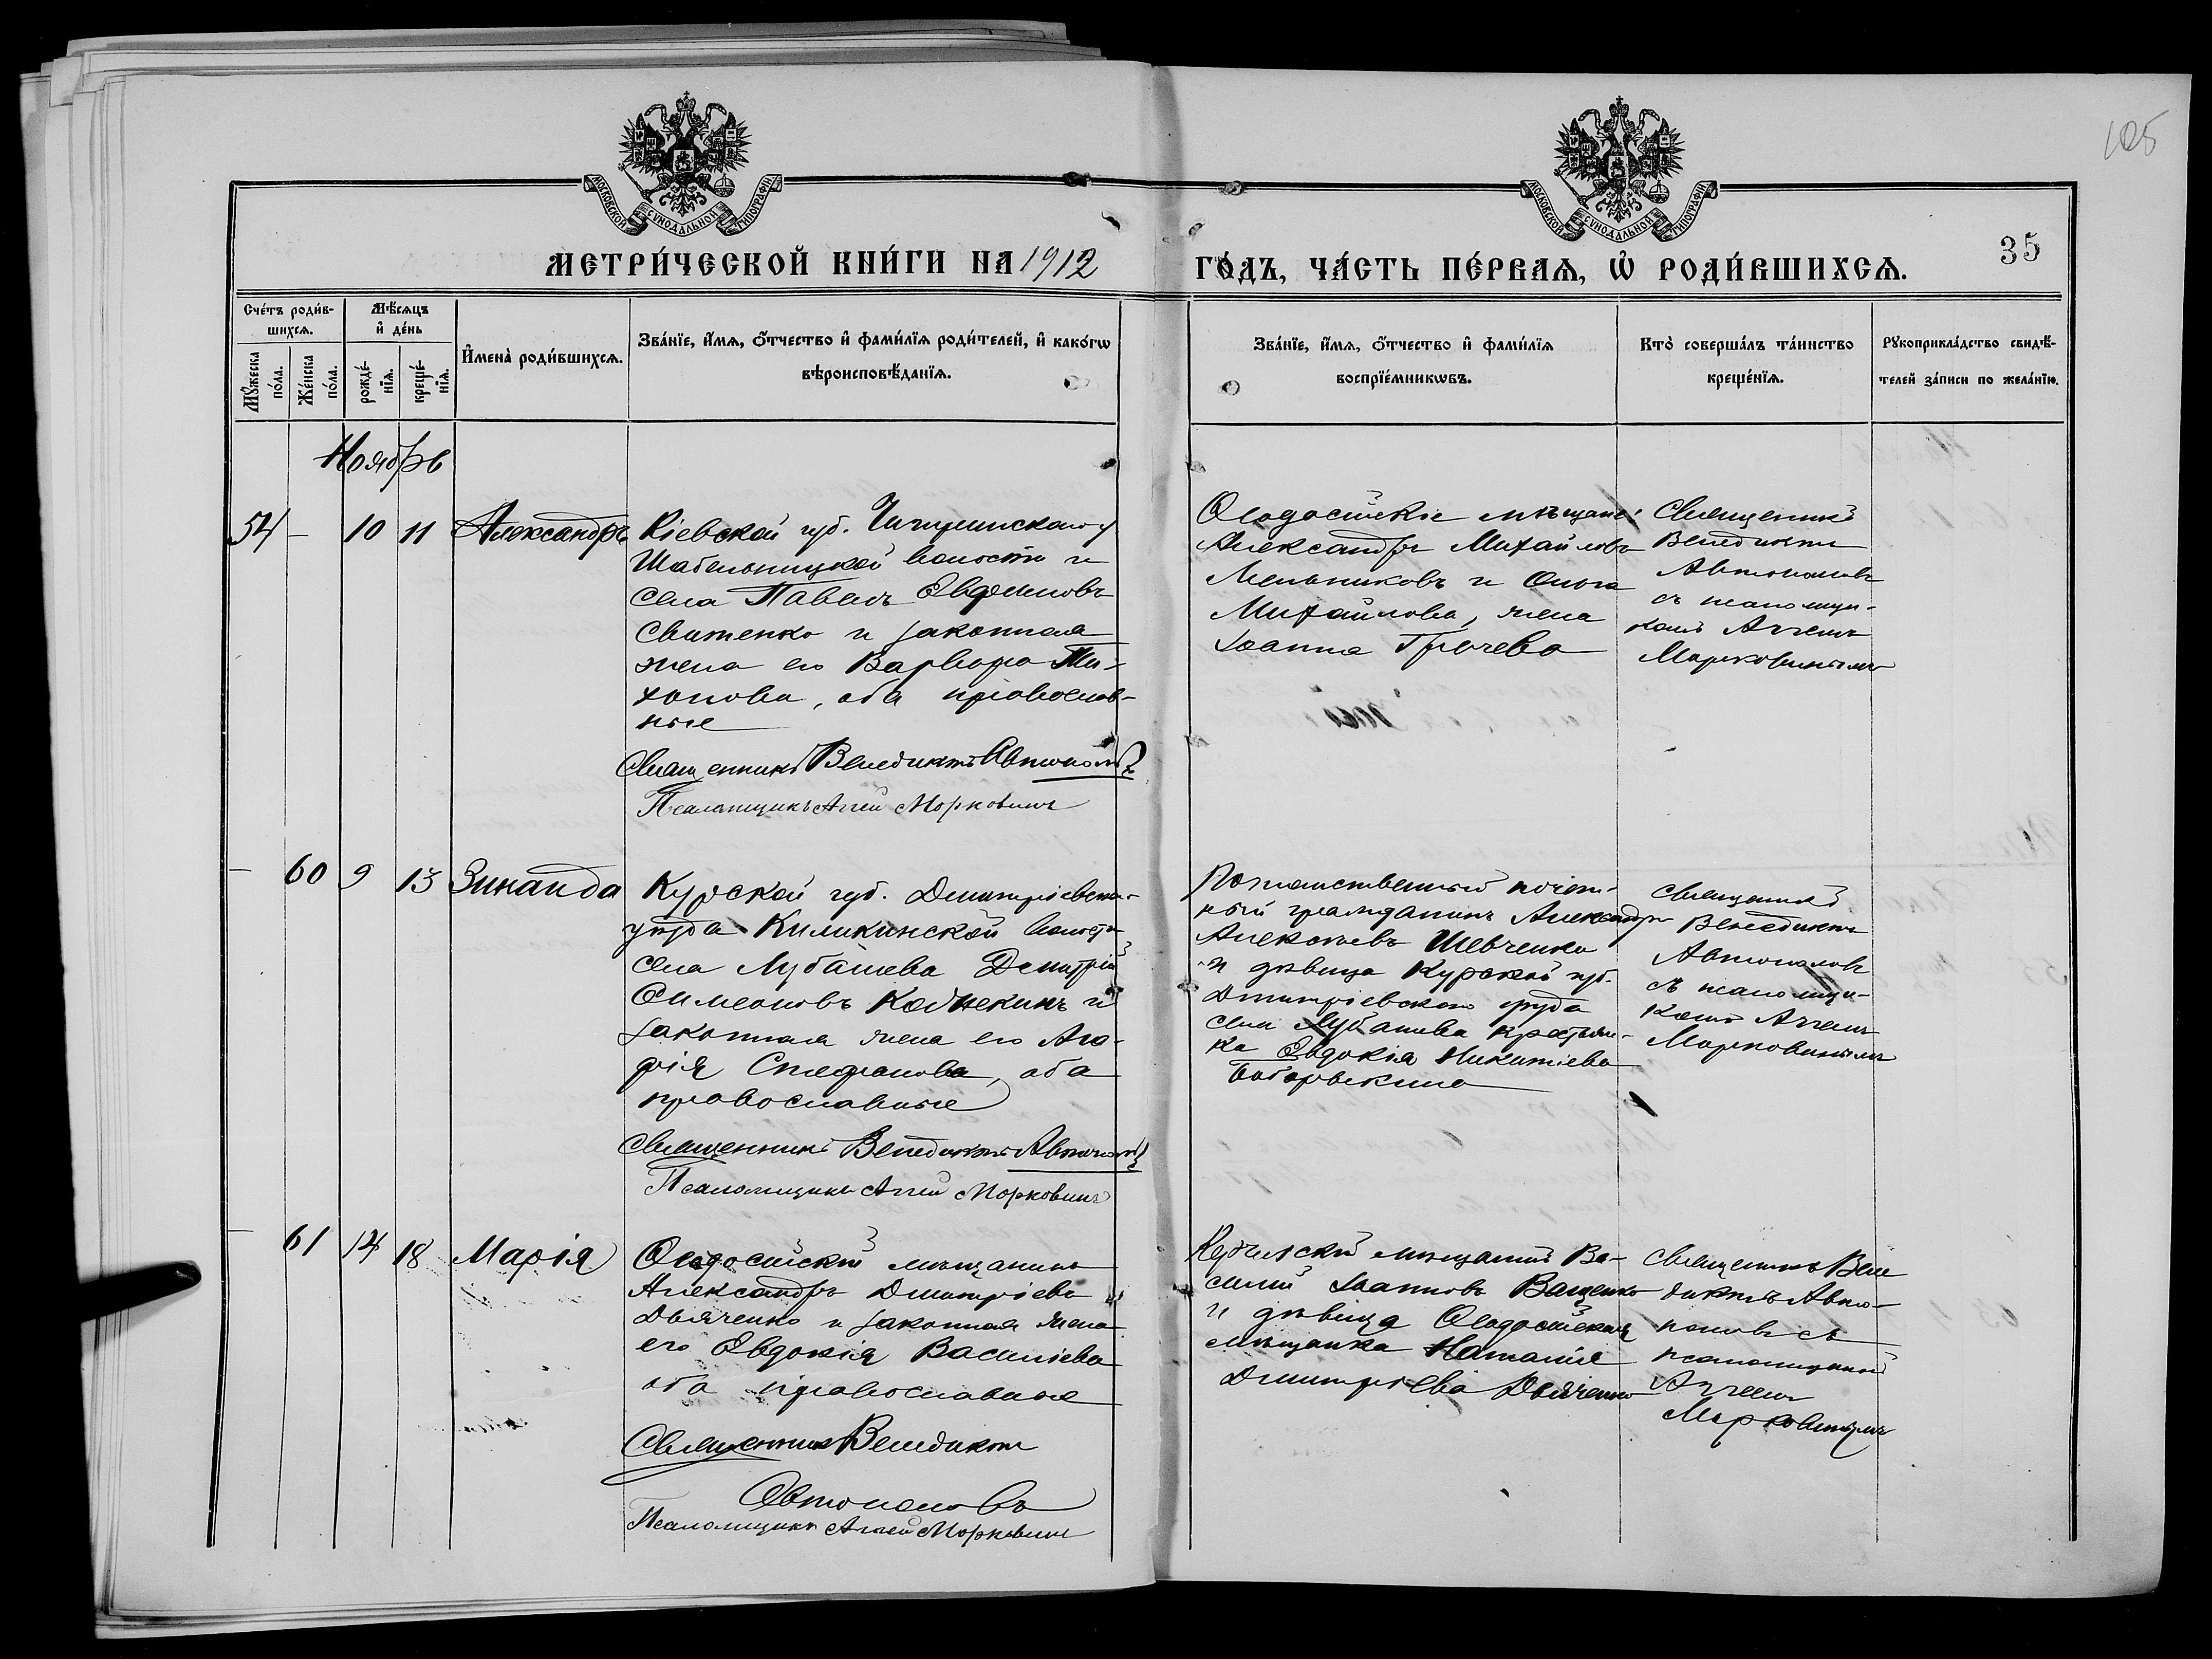 105
МОСКОВСКОЙ СѴНОДАЛЬНОЙ ТИПОГРАФІИ
МОСКОВСКОЙ СѴНОДАЛЬНОЙ ТИПОГРАФІИ
МЕТРИ́ЧЕСКОЙ КНИ́ГИ НА 1912
ГО́ДЪ, ЧА́СТЬ ПЕ́РВАѦ, Ѽ РОДИ́ВШИХСѦ.
35
Сче́тъ роди́в-
шихсѧ.
Мѣ́сѧцъ
и҆ де́нь
Мꙋ́жеска
по́ла.
Же́нска
по́ла.
рожде́-
нїѧ.
креще́-
нїѧ.
И҆мена̀ роди́вшихсѧ.
Зва́нїе, и҆́мѧ, ѻ҆́тчество и҆ фами́лїѧ роди́телей, и҆ како́гѡ
вѣроисповѣ́данїѧ.
Зва́нїе, и҆́мѧ, ѻ҆́тчество и҆ фами́лїѧ
воспрїе́мникѡвъ.
Кто̀ соверша́лъ та́инство
креще́нїѧ.
Рꙋкоприкла́дство свидѣ́-
телей за́писи по жела́нїю.
Ноябрь
54 – 10 11 Александръ
Кіевской губ. Чигиринскаго у
Шабельницкой волости и
села Павелъ Евфимовъ
Свитенко и законная
жена его Варвара Ти-
хонова, оба православ-
ные
Священникъ Венедиктъ Автономовъ
Псаломщикъ Аггей Марковинъ
Ѳеодосійскіе мѣщане:
Александръ Михайловъ
Мельниковъ и Ольга
Михайлова, жена
Іоанна Грачева
Священникъ
Венедиктъ
Автономовъ
съ псаломщи-
комъ Аггеемъ
Марковинымъ
– 60 9 13 Зинаида
Курской губ. Дмитріевска-
уѣзда Киликинской волости
села Лубашева Димитрій
Симеоновъ Кобнекинъ и
законная жена его Ага-
фія Стефанова, оба
православные
Священникъ Венедиктъ Автономовъ
Псаломщикъ Аггей Марковинъ
Потомственный почет-
ный гражданинъ Александръ
Алексѣевъ Шевченко
и дѣвица Курской губ.
Дмитріевскаго уѣзда
села Лубашева крестьян-
ка Евдокія Никитіева
Священникъ
Венедиктъ
Автономовъ
съ псаломщи-
комъ Аггеемъ
Марковинымъ
– 61 14 18 Марія
Ѳеодосійскій мѣщанинъ
Александръ Димитріевъ
Дьяченко и законная жена
его Евдокія Василіева
оба православные
Священникъ Венедиктъ
Автономовъ
Псаломщикъ Аггей Марковинъ
мѣщанинъ Ва-
силій Іоанновъ Ващенко
и дѣвица Ѳеодосійская
мѣщанка Наталія
Димитріева Дьяченко
Священникъ Вене
диктъ Авто-
номовъ съ
псаломщикомъ
Аггеемъ
Марковинымъ